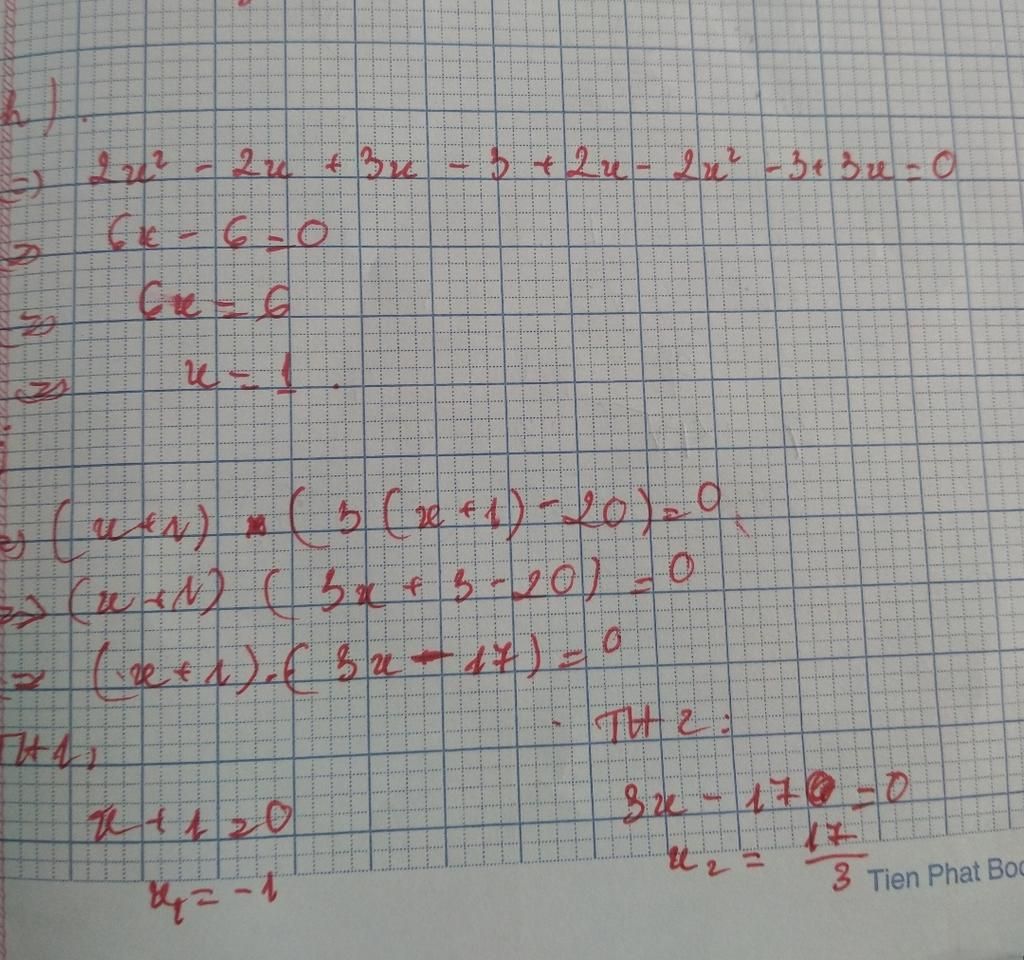 h).
=> 2x² - 2x + 3x - 3 + 2x - 2x² - 3 + 3x = 0
=> 6x - 6 = 0
=> 6x = 6
=> x = 1.
(x+1) (3(x+1) - 20) = 0
=> (x+1) (3x + 3 - 20) = 0
= (x+1).(3x - 17) = 0
TH1: TH2:
x + 1 = 0 3x - 17 = 0
x₁ = -1 x₂ = 17/3
Tien Phat Boo